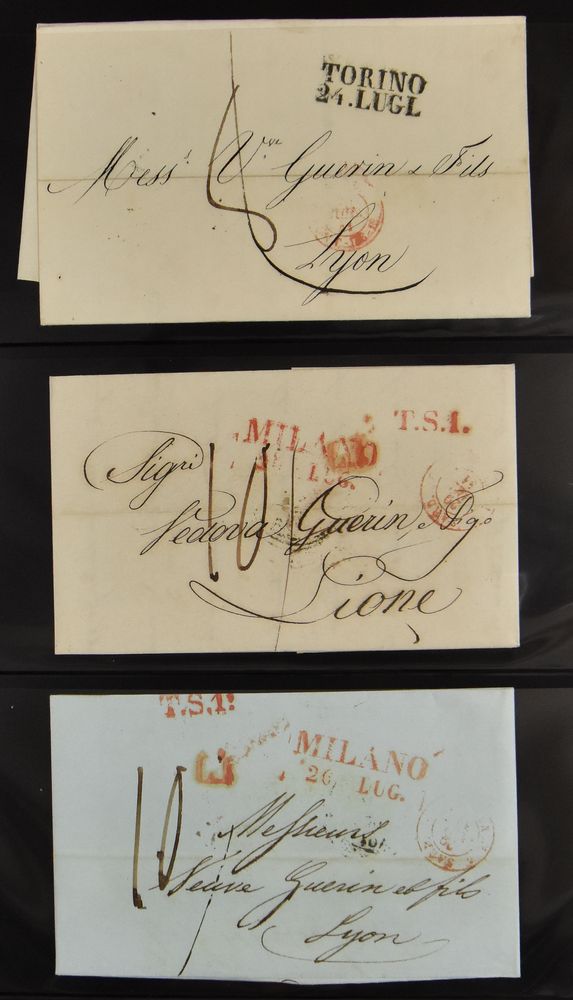 TORINO
24.LUGL
Mess.rs V.ve Guerin & Fils
Lyon
MILANO
LUG.
T.S.1.
Sigri
10
Vedova Guerin, e Figo
Lione
T.S.1º
MILANO
26 LUG.
10
Messieurs
Veuve Guerin et fils
Lyon